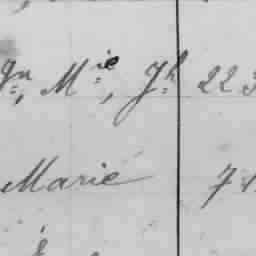 gn, Mie, Jh 22
Marie 7